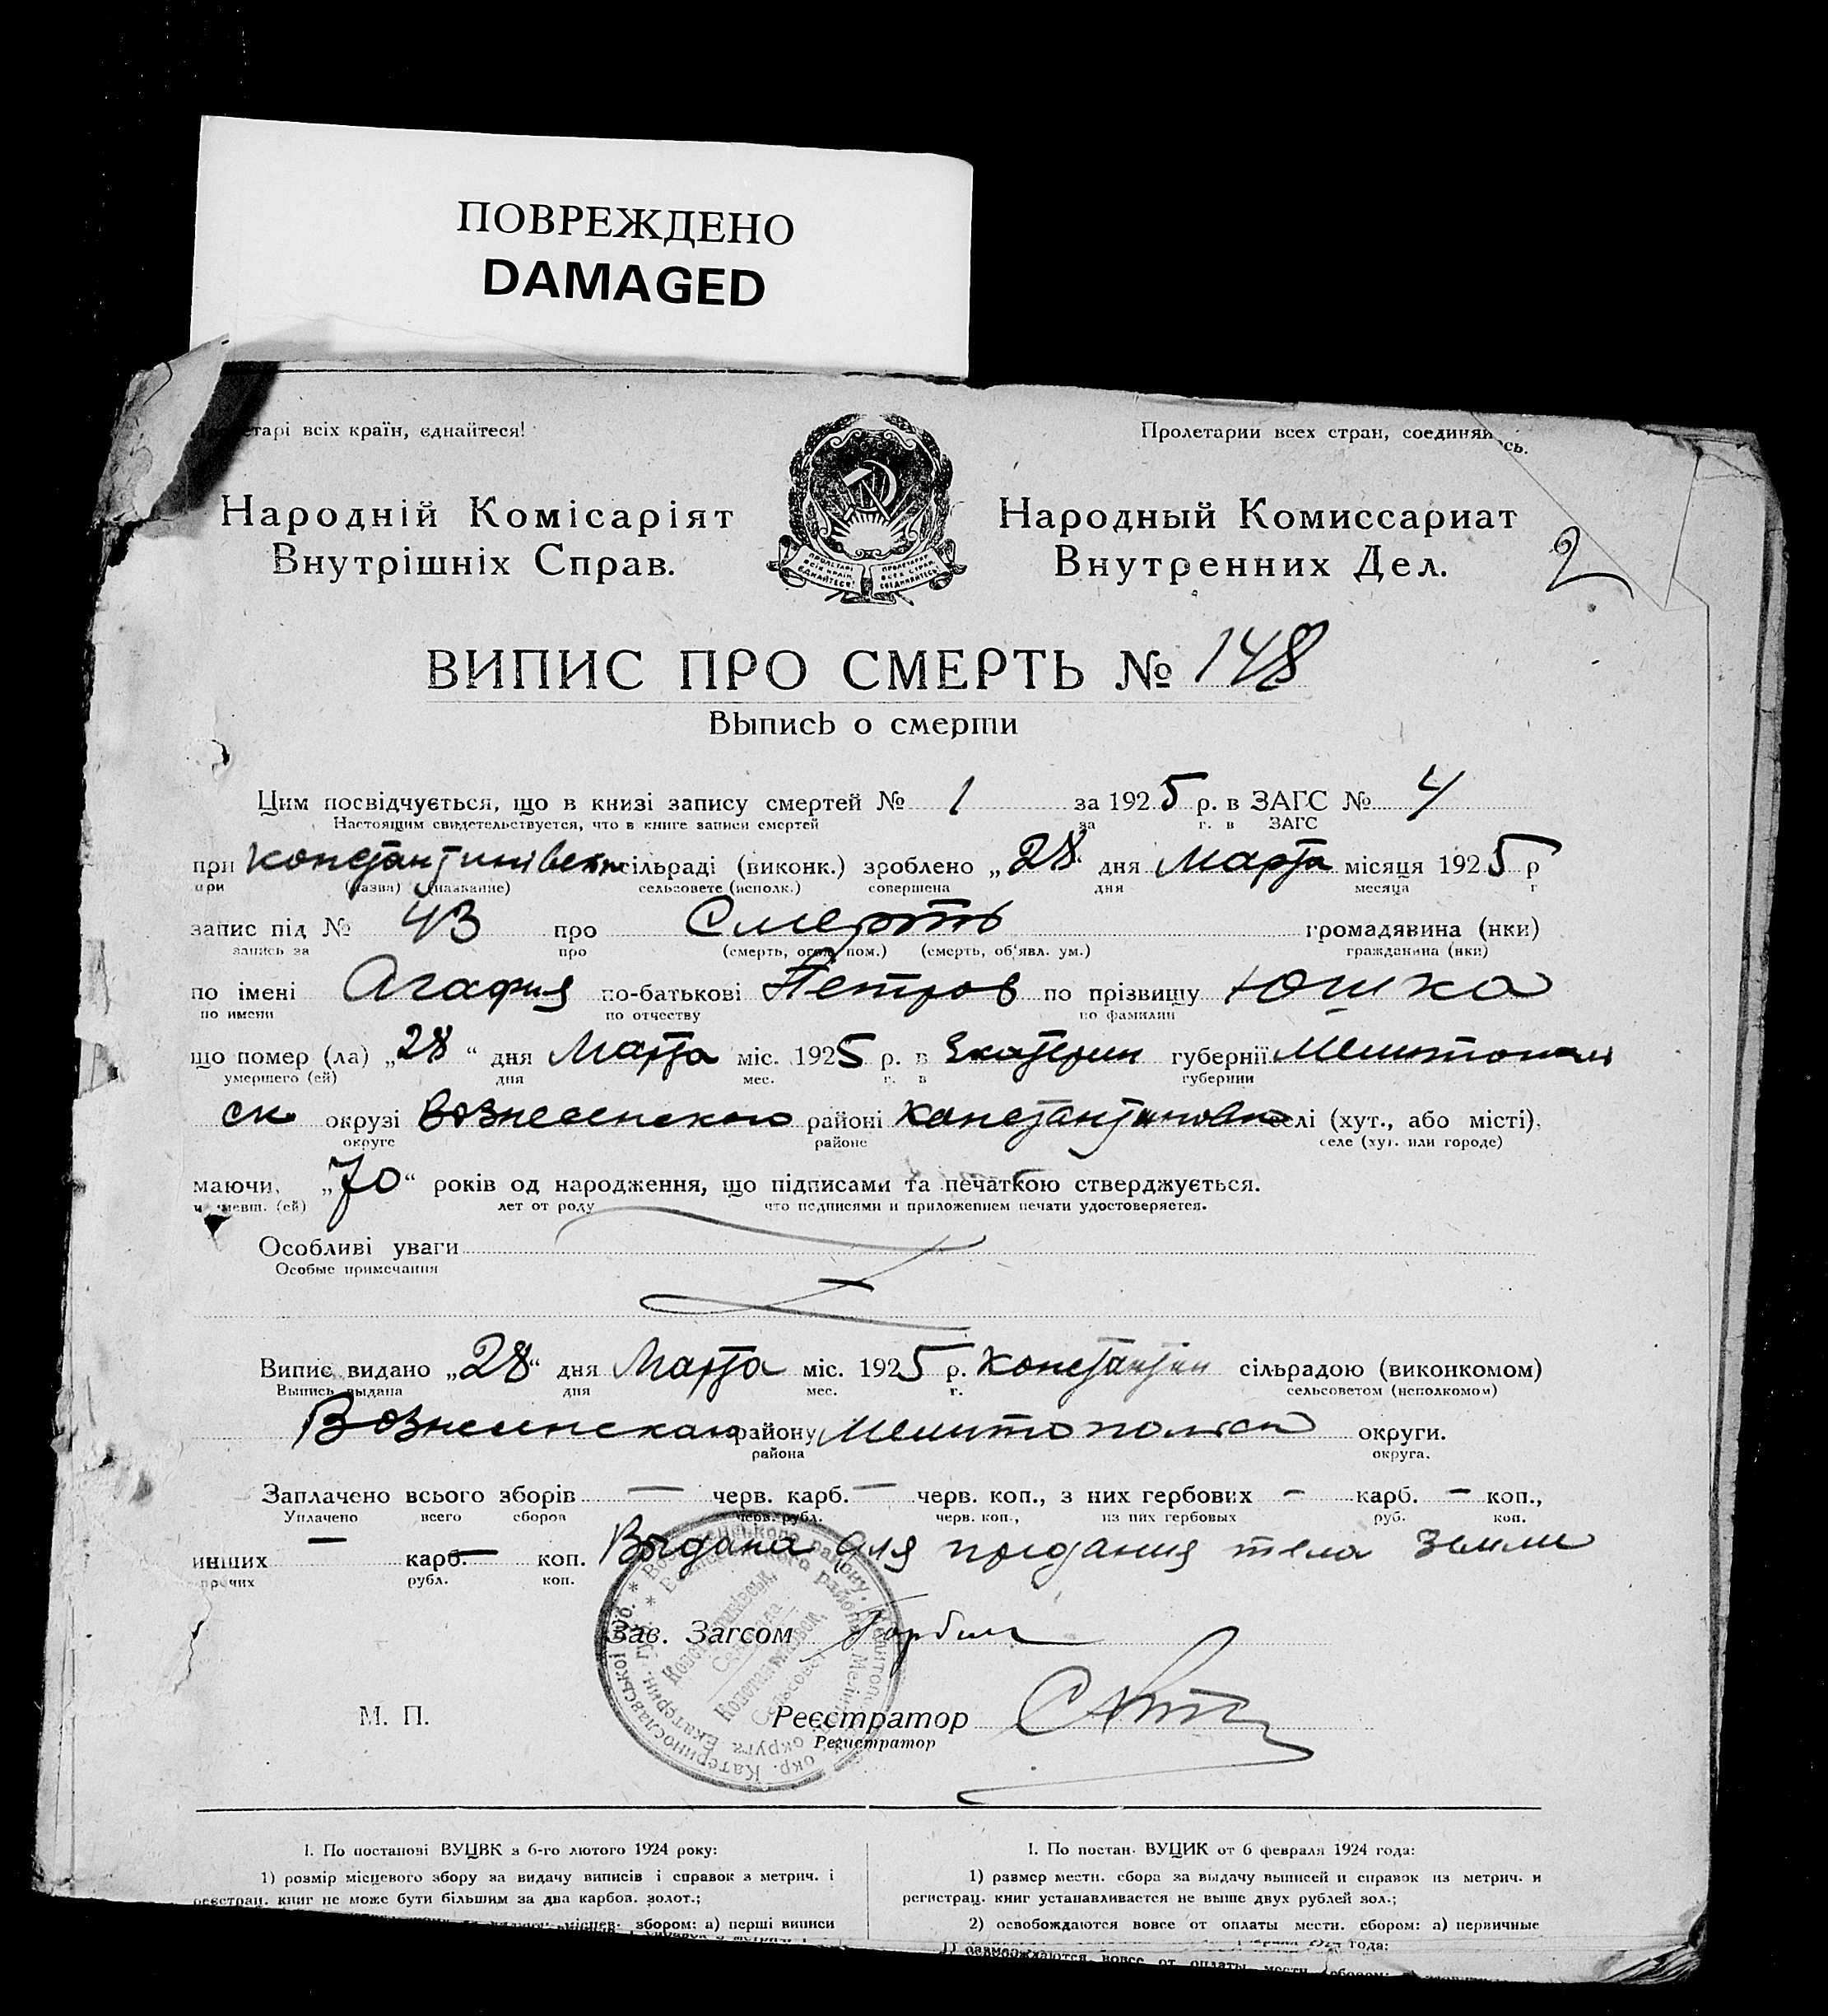 ПОВРЕЖДЕНО
DAMAGED
тарі всіх країн, єднайтеся!
Пролетарии всех стран, соединяй сь.
Народній Комісаріят
Внутрішніх Справ.
ПРОЛЕТАРІ ВСІХ КРАЇН, ЄДНАЙТЕСЯ!
ПРОЛЕТАРИИ ВСЕХ СТРАН, СОЕДИНЯЙТЕСЬ
Народный Комиссариат
Внутренних Дел.
2
ВИПИС ПРО СМЕРТЬ № 148
Выпись о смерти
Цим посвідчується, що в книзі запису смертей № 1 за 1925 р. в ЗАГС № 4
Настоящим свидетельствуется, что в книге записи смертей за г. в ЗАГС
при сільраді (виконк.) зроблено „28“ дня Марта місяця 1925 р
при (назва) (название) сельсовете (исполк.) совершена дня месяца г
запис під № 43 про Смерть громадянина (нки)
запись за про (смерть, огол. пом.) (смерть, об'явл. ум.) гражданина (нки)
по імені Агафия по-батькові Петров по прізвищу Юшка
по имени по отчеству по фамилии
що помер (ла) „28“ дня Марта міс. 1925 р. в Екатерин губернії Мелитополь
умершего (ей) дня мес. г. в губернии
ск окрузі Вознесенского районі Константиновка селі (хут., або місті),
округе районе селе (хут. или городе)
маючи, „70“ років од народження, що підписами та печаткою стверджується.
имевш. (ей) лет от роду что подписями и приложением печати удостоверяется.
Особливі уваги
Особые примечания
Випис видано „28“ дня Марта міс. 1925 р. Константин сільрадою (виконкомом)
Выпись выдана дня мес. г. сельсоветом (исполкомом)
Вознесенского району Мелитопольск округи.
района округа.
Заплачено всього зборів — черв. карб. — черв. коп., з них гербових — карб. — коп.,
Уплачено всего сборов черв. рубл. черв. коп., из них гербовых руб. коп.
инших — карб. — коп. Выдана для придания тела земли
прочих рубл. коп.
Зав. Загсом
М. П.
Реєстратор
Регистратор
I. По постанові ВУЦВК з 6-го лютого 1924 року:
1) розмір місцевого збору за видачу виписів і справок з метрич. і
реєстрац. книг не може бути більшим за два карбов. золот.;
місцев. збором: а) перші виписи
I. По постан. ВУЦИК от 6 февраля 1924 года:
1) размер местн. сбора за выдачу выписей и справок из метрич. и
регистрац. книг устанавливается не выше двух рублей зол.;
2) освобождаются вовсе от оплаты местн. сбором: а) первичные
года:
вовсе от оплаты местн. сбором: